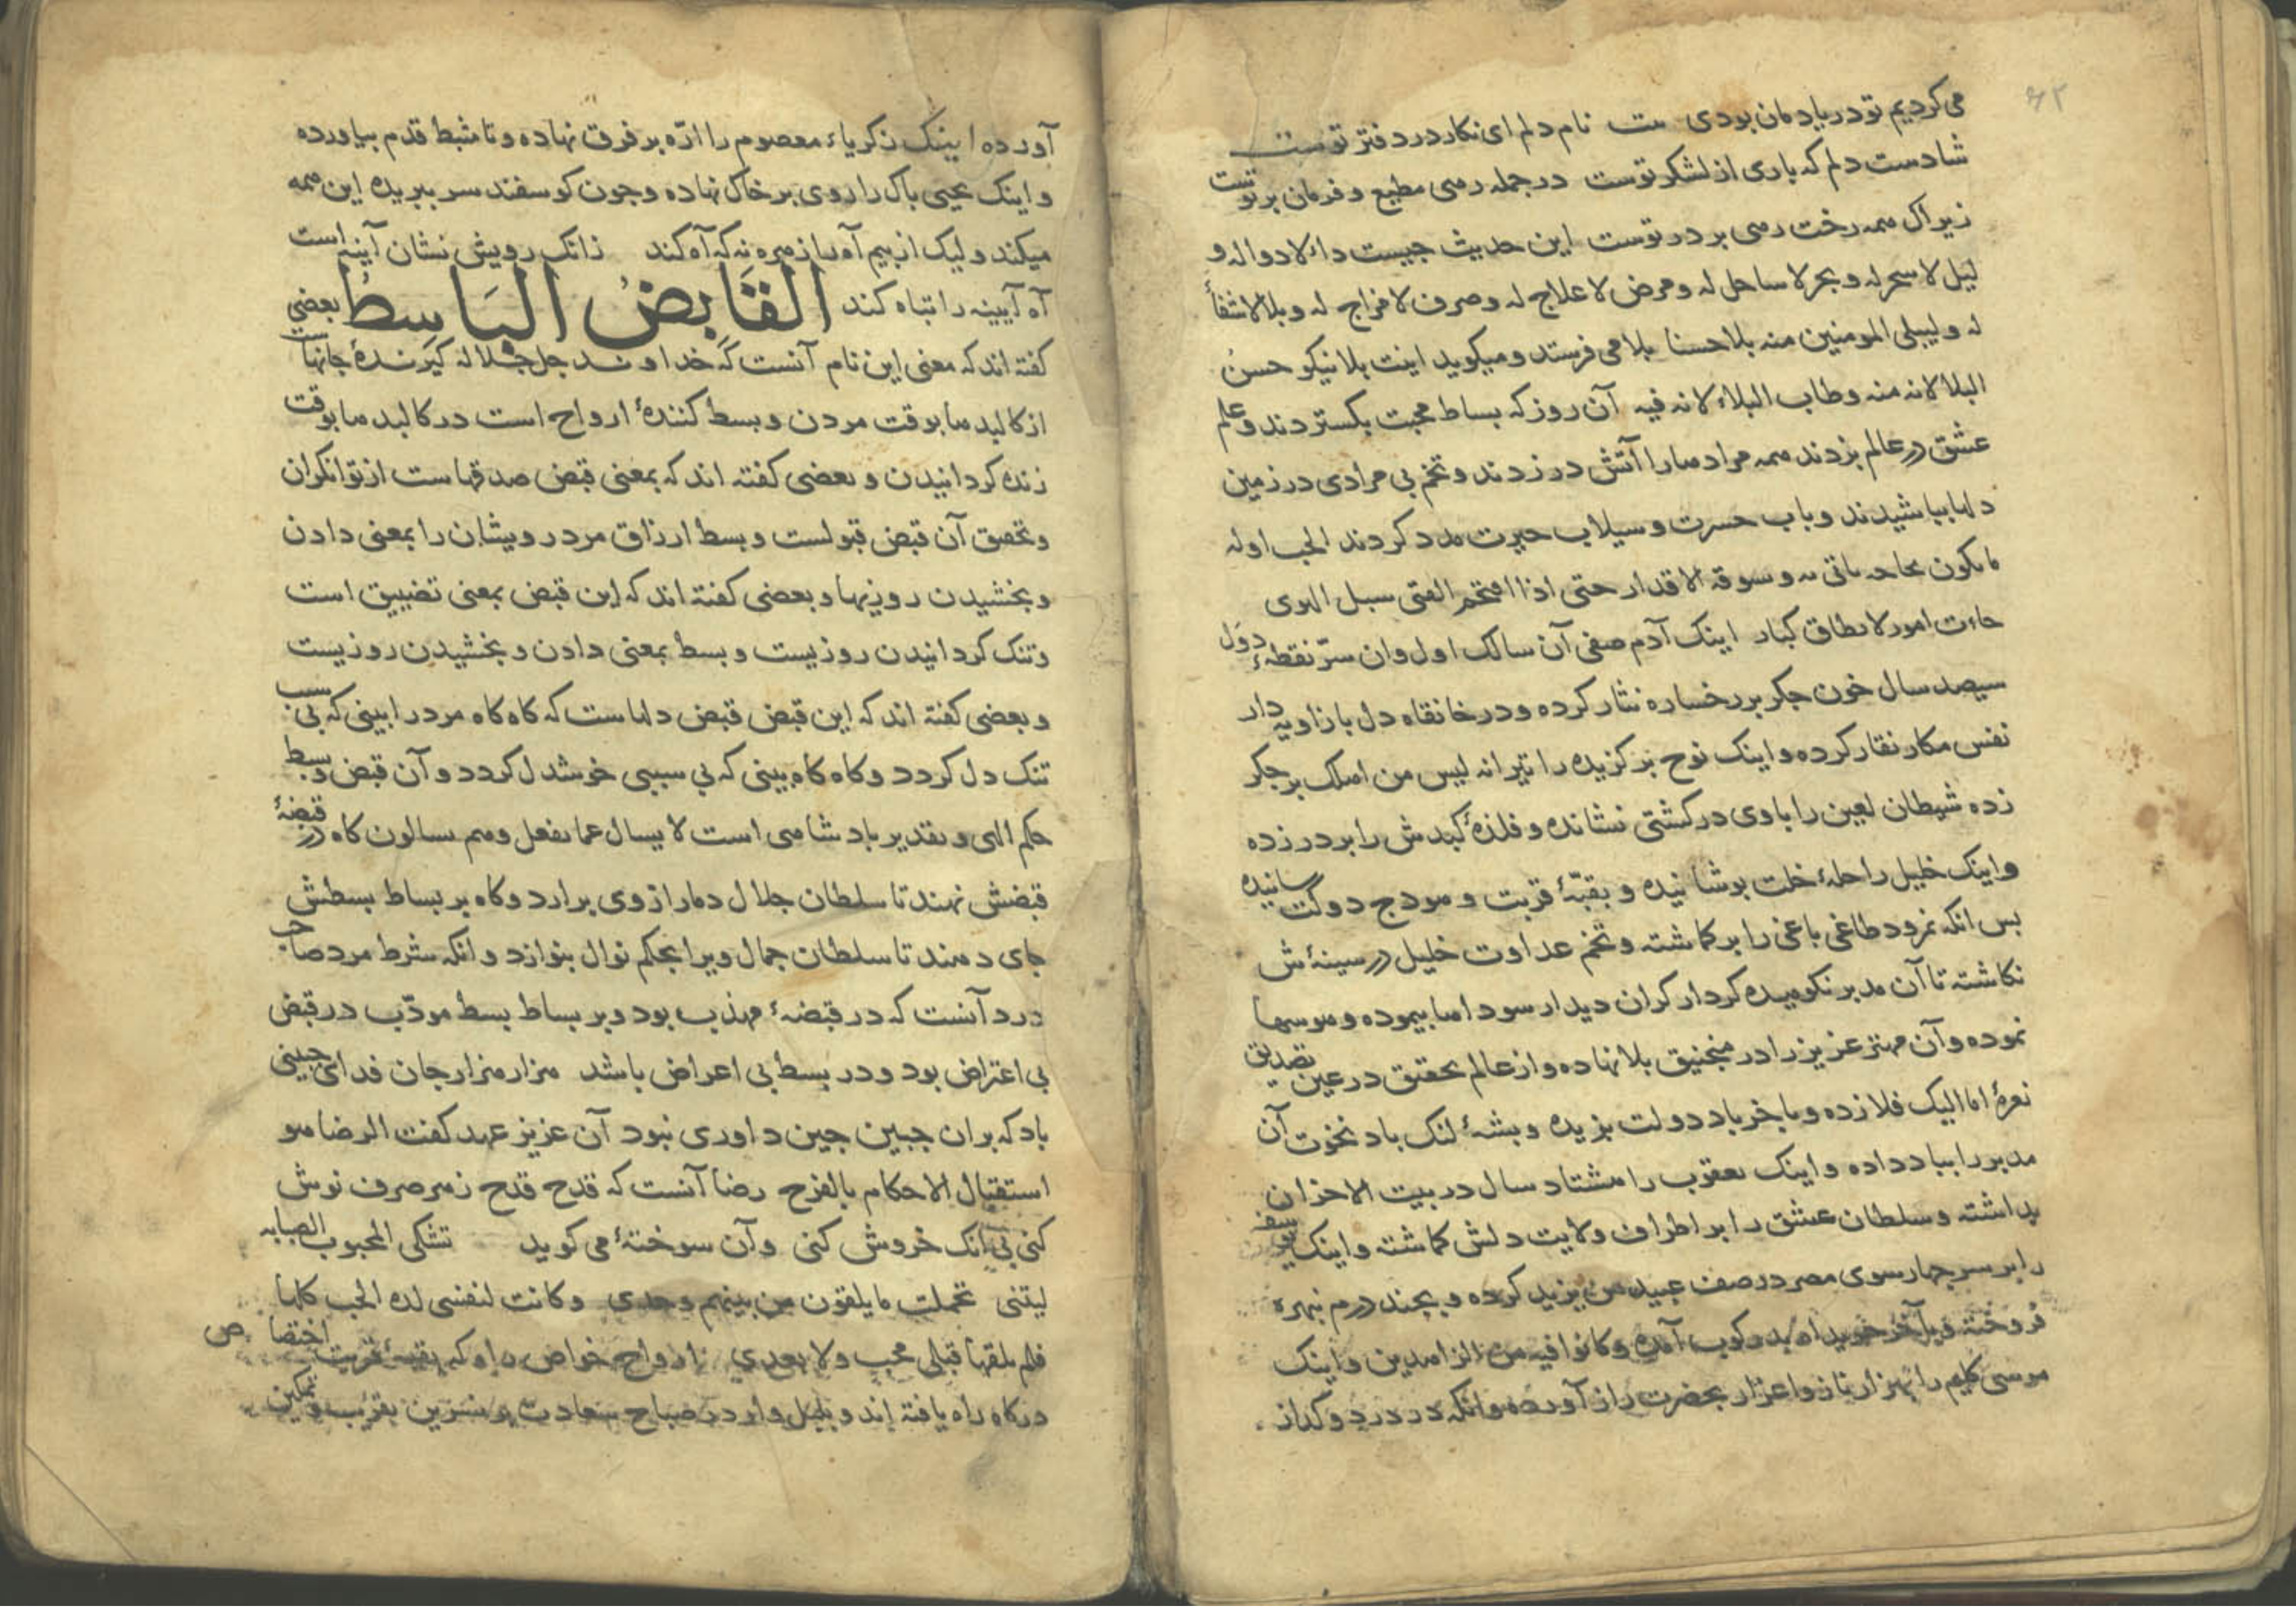 ۶۲
می کردیم تو در یاد مان بودی بیت نام دلم ای نکار در دفتر توست
شادست دلم که باری از لشکر توست در جمله رهی مطیع و فرمان بر توست
زیراک همه رخت رهی بر در توست این حدیث جیست داء لا دوا له و
لیل لا سحر له و بحر لا ساحل له و مرض لا علاج له و صرف لا مزاج له و بلا لا شفأ
له و لیبلی المومنین منه بلا حسنا بلا می فرستد و میکوید اینت بلا نیکو حسن
البلا لانه منه و طاب البلاء لانه فیه آن روز که بساط محبت بکستردند و علم
عشق در عالم بزدند همه مرادها را آتش در زدند و تخم بی مرادی در زمین
دلها بباشیدند و باب حسرت و سیلاب حیرت مدد کردند الحب اوله
ما یکون لجاجه یاتی به و سوقه الاقدار حتی اذا اقتحم الفتی سبل الهوی
جاءت امور لا یطاق کبار اینک آدم صفی آن سالک اول و ان سرّ نقطهٔ دول
سیصد سال خون جکر بر رخساره نثار کرده و در خانقاه دل با زاویه دار
نفس مکار نقار کرده و اینک نوح برکزیده را تیر انه لیس من اهلک بر جکر
زده شیطان لعین را با وی در کشتی نشانده و فلذهٔ کبدش را بر در زده
و اینک خلیل را حلهٔ خلت بوشانیده و بقبّهٔ قربت و هودج دولت رسانیده
بس انکه نمرود طاغی باغی را بر کماشته و تخم عداوت خلیل در سینهٔ ش
نکاشته تا آن مدبر نکوهیده کردار کران دیدار سوداها بیموده و هوسها
نموده و آن مهتر عزیز را در منجنیق بلا نهاده و از عالم تحقیق در عین تصدیق
نعرهٔ اما الیک فلا زده و باخر باد دولت بزیده و بشهٔ لنک باد نخوت آن
مدبر را بباد داده و اینک یعقوب را هشتاد سال در بیت الاحزان
بداشته و سلطان عشق را بر اطراف ولایت دلش کماشته و اینک یوسف
را بر سر جهار سوی مصر در صف عبید من یزید کرده و بجند درم نبهره
فروخته و با آخر خریداه بدر کوب آمده و کانوا فیه من الزاهدین و اینک
موسی کلیم را بهزار ناز و اعزاز بحضرت راز آورده و انکه در درد و کداز
آورده اینک زکریاء معصوم را ارّه بر فرق نهاده و تا مثبط قدم بیاورده
و اینک یحیی باک را روی بر خاک نهاده و جون کوسفند سر ببریده این همه
میکند و لیک از بیم آه را زهره نه که آه کند زانک رویش نشان آینه است
آه آیینه را تباه کند القَابِضُ البَاسِطُ بعضی
کفته اند که معنی این نام آنست که خداوند جل جلاله کیرندهٔ جانهاست
از کالبدها بوقت مردن و بسط کنندهٔ ارواح است در کالبدها بوقت
زنده کردانیدن و بعضی کفته اند که بمعنی قبض صدقهاست از توانکران
و تحقیق آن قبض قبولست و بسط ارزاق مر درویشان را بمعنی دادن
و بخشیدن روزیها و بعضی کفته اند که این قبض بمعنی تضییق است
و تنک کردانیدن روزیست و بسط بمعنی دادن و بخشیدن روزیست
و بعضی کفته اند که این قبض قبض دلهاست که کاه کاه مرد را بینی که بی سبب
تنک دل کردد و کاه کاه بینی که بی سببی خوشدل کردد و آن قبض و بسط
حکم الهی و تقدیر بادشاهی است لا یسال عما یفعل و هم یسالون کاه در قبضهٔ
قبضش نهند تا سلطان جلال دمار از وی برارد و کاه بر بساط بسطش
جای دهند تا سلطان جمال ویرا بحکم نوال بنوازد و انکه شرط مرد صاحب
درد آنست که در قبضهٔ مهذب بود و بر بساط بسط مودّب در قبض
بی اعتراض بود و در بسط بی اعراض باشد هزار هزار جان فدای جبینی
باد که بران جبین جین داوری نبود آن عزیز عهد کفت الرضا هو
استقبال الاحکام بالفرح رضا آنست که قدح قدح زهر صرف نوش
کنی بی آنک خروش کنی و آن سوختهٔ می کوید تشکی المحبوب الصبابه
لیتنی تحملت ما یلقون من بینهم وحدی و کانت لنفسی لذه الحب کلها
فلم یلقها قبلی محب و لا بعدی ارواح خواص راه که بقبهٔ قربت اختصاص
درکاه راه یافته اند و بلبل وار در صباح سعادت بر نسرین بقرب و تمکین